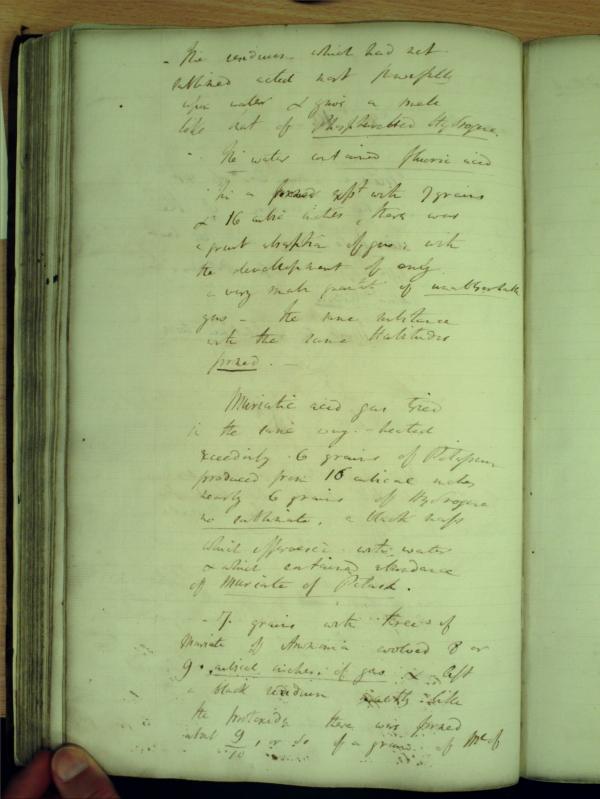 - The residuum which had not
sublimed acted most powerfully
upon water & gave a smell
like that of Phosphuretted Hydrogene.
- The water contained fluoric acid
In a second expt with 7 grains
& 16 cubic inches, there was
a great absorption of gas; with
the development of only
a very small quantity of unabsorbable
gas - the same substance
with the same Habitudes
formed. -
Muriatic acid gas tried
in the same way - heated
exceedingly 6 grains of Potassium
produced from 16 cubical inches
nearly 6 grains of Hydrogene
no sublimate, a black mass
which effervesced with water
& which contained abundance
of Muriate of Potash.
- 7 grains with three of
Muriate of Ammonia evolved 8 or
9 cubical inches of gas & left
a black residuum exactly like
the protoxide there was formed
about 9/10 or so of a grain of